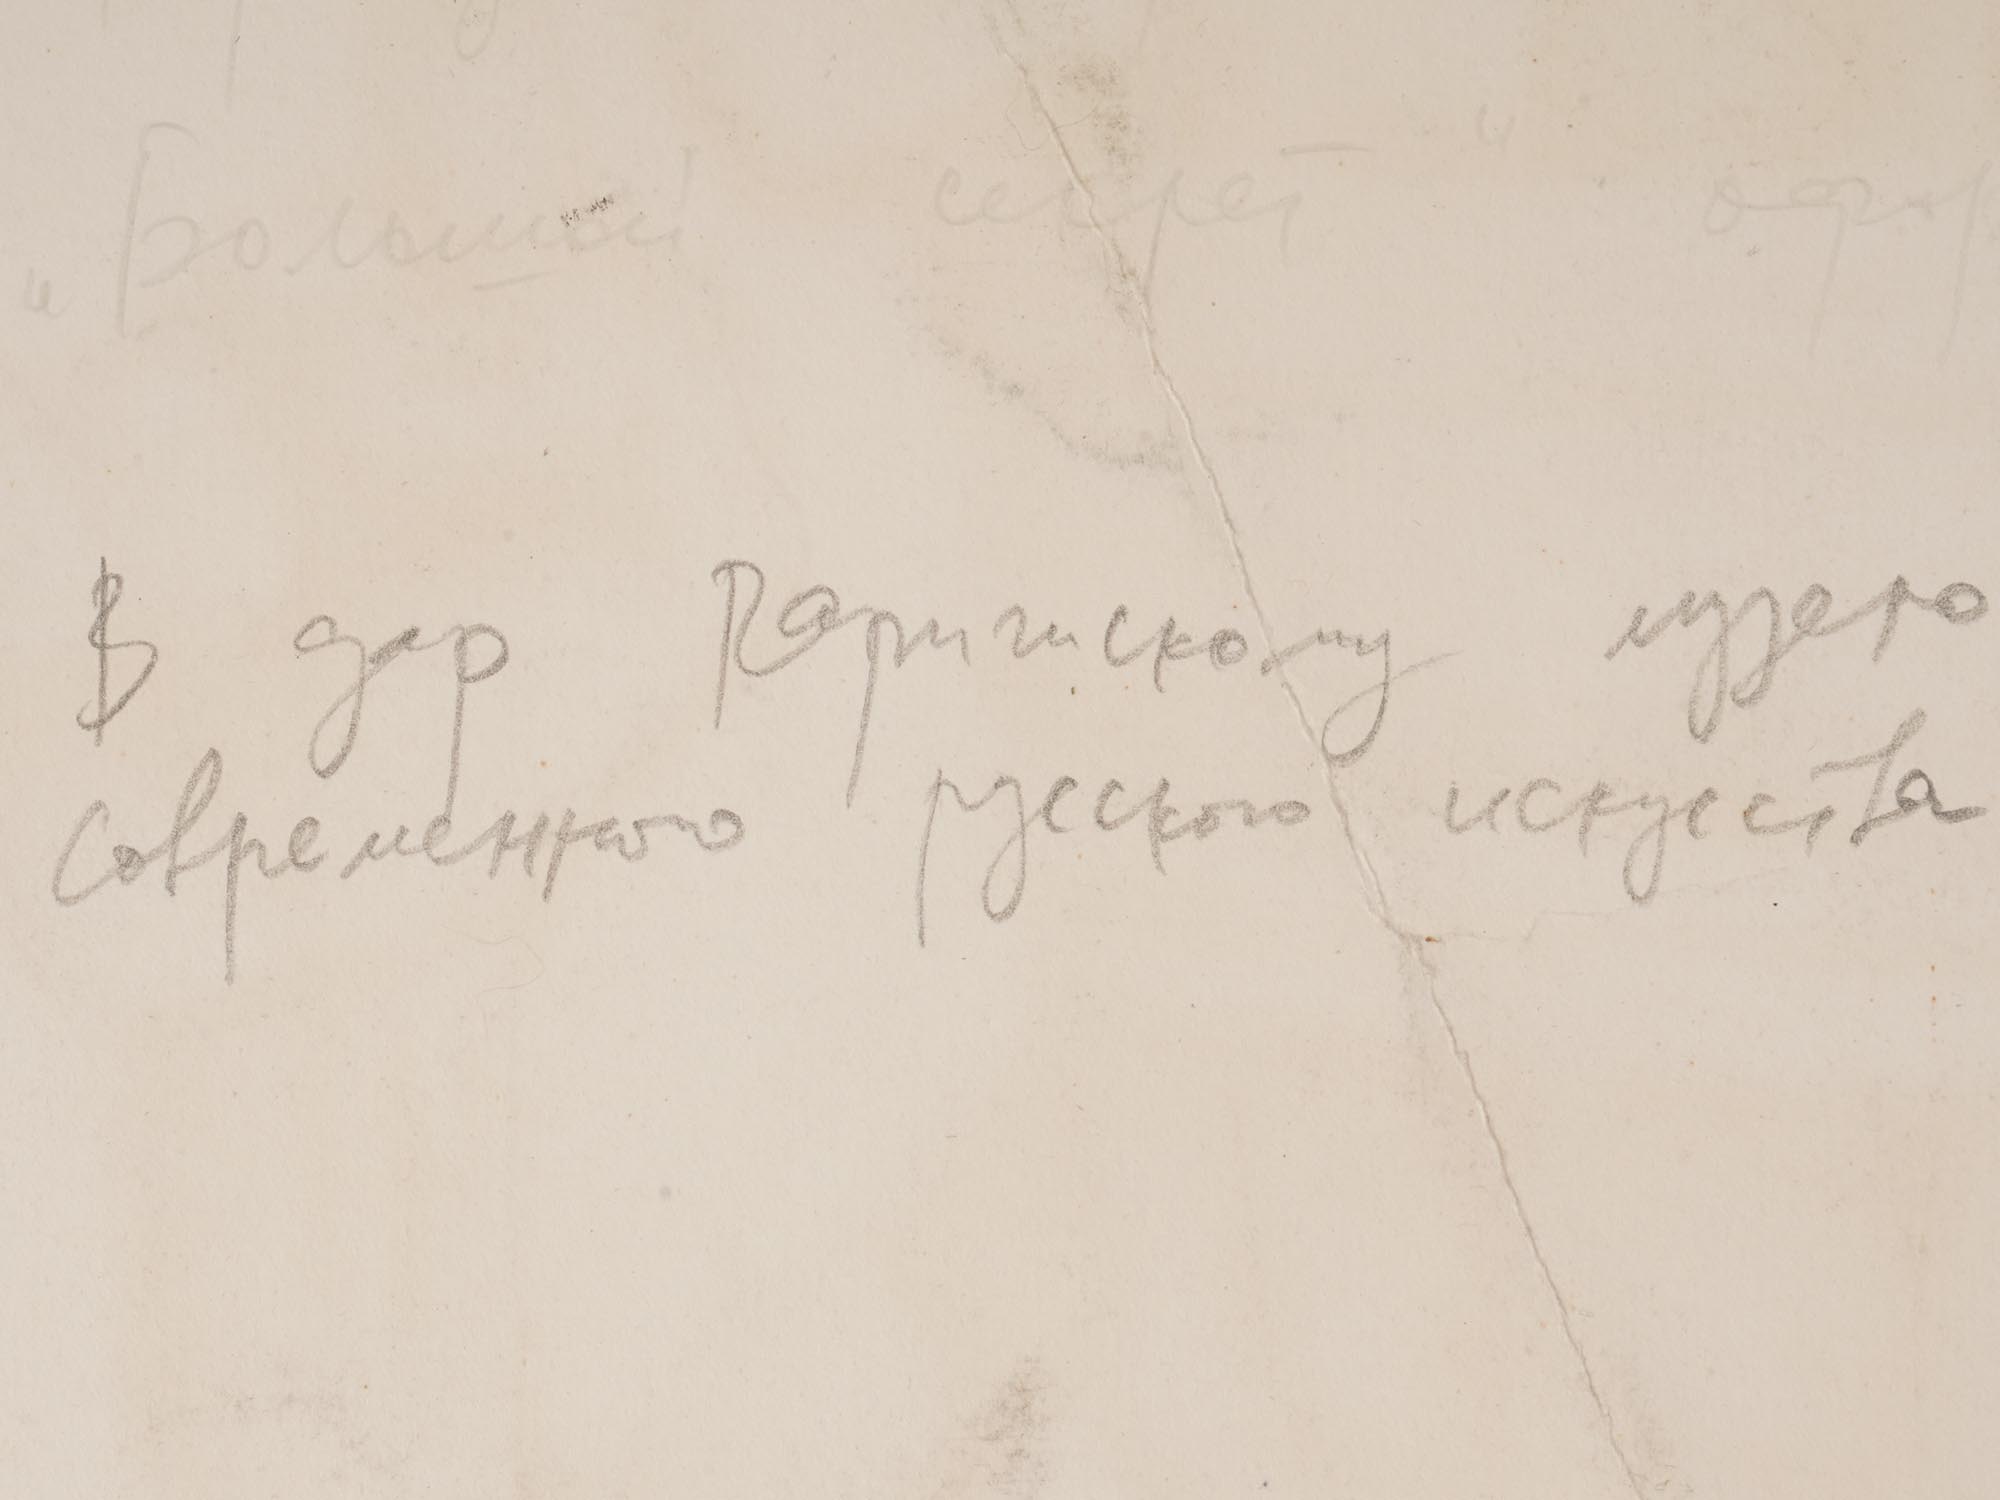 „Большой секрет" офор
В дар Парижскому музею
современного русского искусства